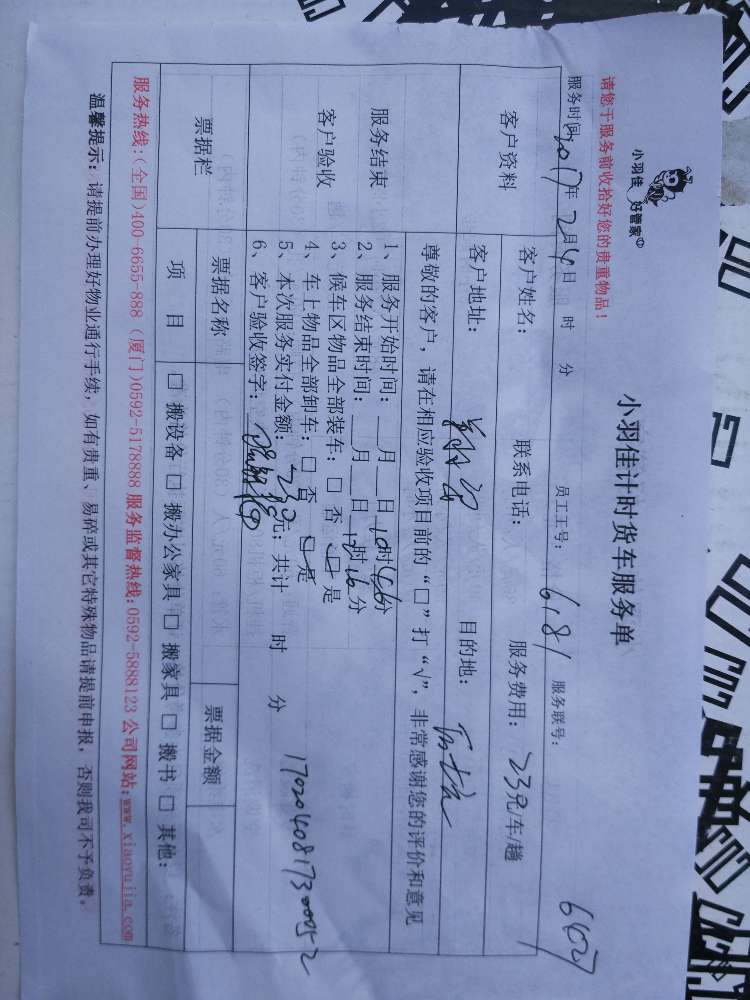 小羽佳 好管家
请您于服务前收拾好您的贵重物品！
小羽佳计时货车服务单
服务时间2017年2月4日 时 分 员工工号：6181 服务联号：
客户资料
客户姓名： 联系电话： 服务费用：23元/车/趟
客户地址： 目的地：
尊敬的客户，请在相应验收项目前的“□”打“√”，非常感谢您的评价和意见
服务结束
客户验收
1、服务开始时间：__月__日10时46分
2、服务结束时间：__月__日12时16分
3、候车区物品全部装车：□ 否 □ 是
4、车上物品全部卸车：□ 否 □ 是
5、本次服务实付金额：230元；共计 时 分
6、客户验收签字：
17020408173000052
票据栏
票据名称
票据金额
项 目
□ 搬设备 □ 搬办公家具 □ 搬家具 □ 搬书 □ 其他：
服务热线：（全国）400-6655-888（厦门）0592-5178888 服务监督热线：0592-5888123 公司网站：www.xiaoyujia.com
温馨提示：请提前办理好物业通行手续，如有贵重、易碎或其它特殊物品请提前申报，否则我司不予负责。